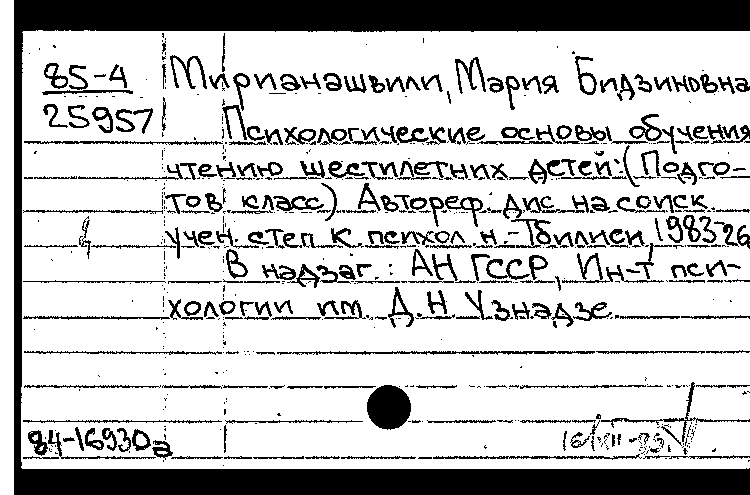 85-4
25957
Мирианашвили, Мария Бидзиновна
Психологические основы обучения
чтению шестилетних детей: (Подго-
тов класс) Автореф. дис на соиск.
учен. степ к. психол. н. - Тбилиси, 1983-26
В надзаг.: АН ГССР, Ин-т пси-
хологии им. Д.Н Узнадзе
84-16930а